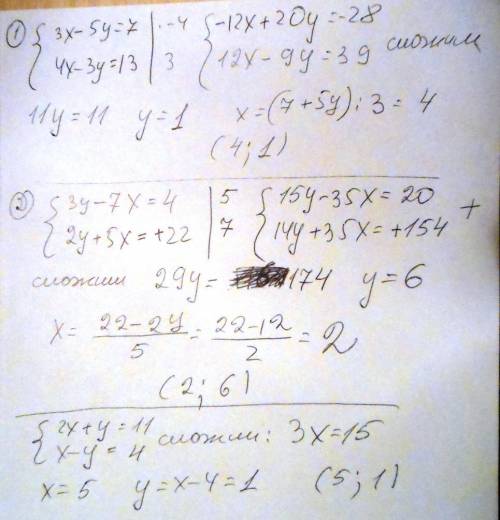 ① { 3x-5y=7 | ·-4 { -12x+20y=-28
4x-3y=13 | 3 12x-9y=39 сложим
11y=11 y=1 x=(7+5y):3=4
(4;1)
② { 3y-7x=4 | 5 { 15y-35x=20 +
2y+5x=+22 | 7 14y+35x=+154
сложим 29y= 174 y=6
x= (22-2y)/5 = (22-12)/2 = 2
(2;6)
{ 2x+y=11
x-y=4 сложим: 3x=15
x=5 y=x-4=1 (5;1)